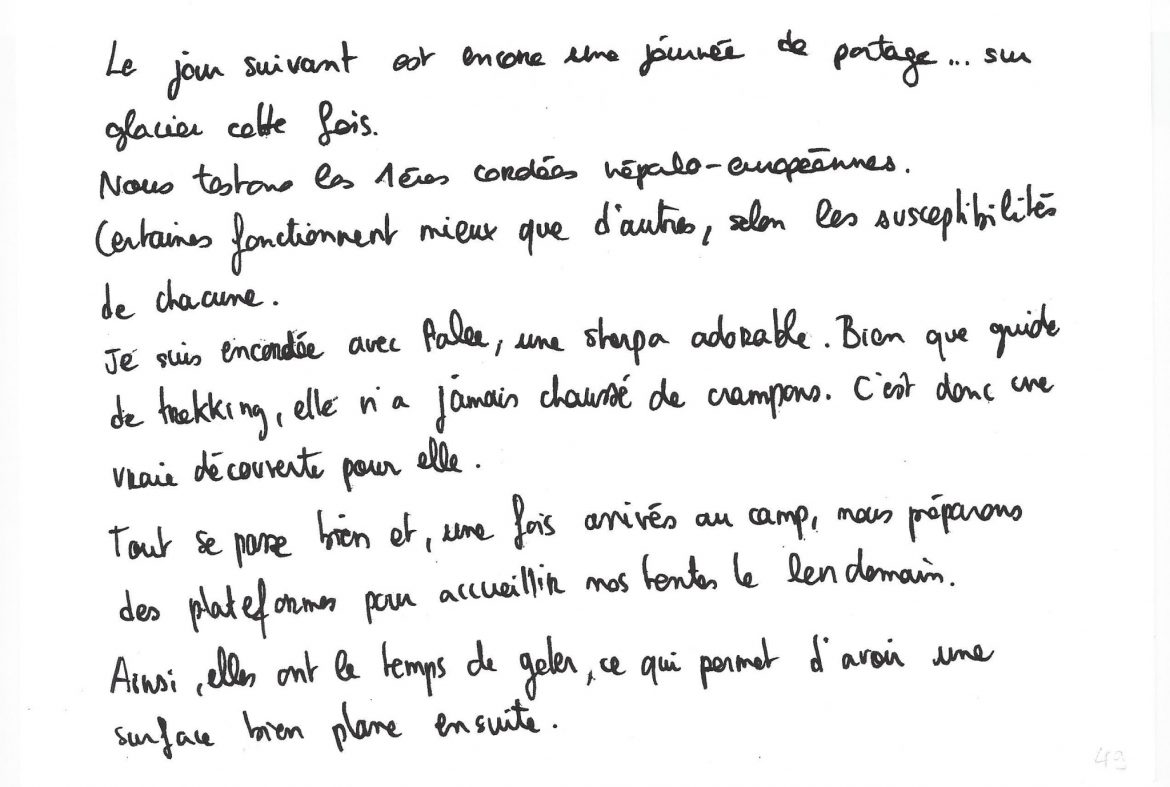 Le jour suivant est encore une journée de portage... sur
glacier cette fois.
Nous testons les 1ères cordées népalo-européennes.
Certaines fonctionnent mieux que d'autres, selon les susceptibilités
de chacune.
Je suis encordée avec , une sherpa adorable. Bien que guide
de trekking, elle n'a jamais chaussé de crampons. C'est donc une
vraie découverte pour elle.
Tout se passe bien et, une fois arrivés au camp, nous préparons
des plateformes pour accueillir nos tentes le lendemain.
Ainsi, elles ont le temps de geler, ce qui permet d'avoir une
surface bien plane ensuite.
49